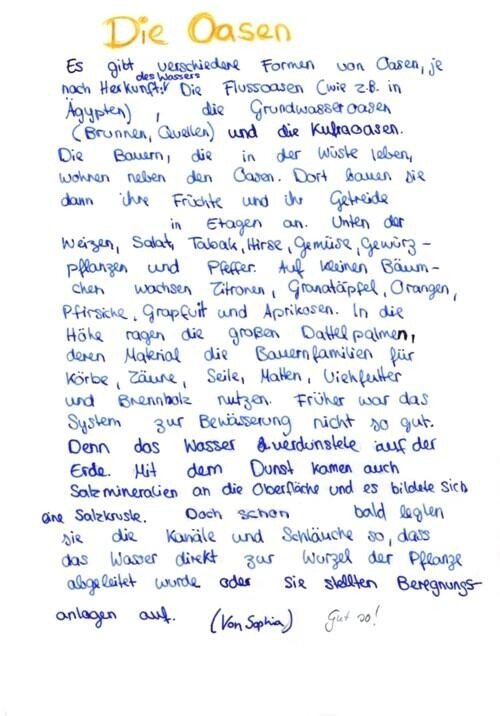 Die Oasen
Es gibt verschiedene Formen von Oasen, je
nach Herkunft des Wassers: Die Flussoasen (wie z.B. in
Ägypten), die Grundwasseroasen
(Brunnen, Quellen) und die Kufraoasen.
Die Bauern, die in der Wüste leben,
wohnen neben den Oasen. Dort bauen sie
dann ihre Früchte und ihr Getreide
in Etagen an. Unten der
Weizen, Salat, Tabak, Hirse, Gemüse, Gewürz-
pflanzen und Pfeffer. Auf kleinen Bäum-
chen wachsen Zitronen, Granatäpfel, Orangen,
Pfirsiche, Grapfuit und Aprikosen. In die
Höhe ragen die großen Dattelpalmen,
deren Material die Bauernfamilien für
Körbe, Zäune, Seile, Matten, Viehfutter
und Brennholz nutzen. Früher war das
System zur Bewässerung nicht so gut.
Denn das Wasser verdunstete auf der
Erde. Mit dem Dunst kamen auch
Salzmineralien an die Oberfläche und es bildete sich
eine Salzkruste. Doch schon bald legten
sie die Kanäle und Schläuche so, dass
das Wasser direkt zur Wurzel der Pflanze
abgeleitet wurde oder sie stellten Beregnungs-
anlagen auf. (Von Sophia) Gut so!